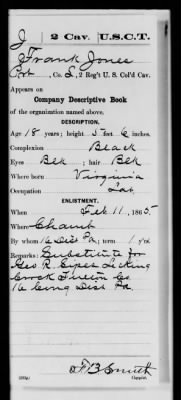 J 2 Cav. U.S.C.T.
Frank Jones
Pvt, Co. L, 2 Reg't U. S. Col'd Cav.
Appears on
Company Descriptive Book
of the organization named above.
DESCRIPTION.
Age 18 years; height 5 feet 6 inches.
Complexion Black
Eyes Blk; hair Blk
Where born Virginia
Occupation Lab.
ENLISTMENT.
When Feb 11, 1865
Where Chamb
By whom 16 Dist Pa; term 1 y'rs
Remarks: Substitute for
Geo R. Licking
Creek Fulton Co
16 Cong Dist. Pa.
Smith
Copyist.